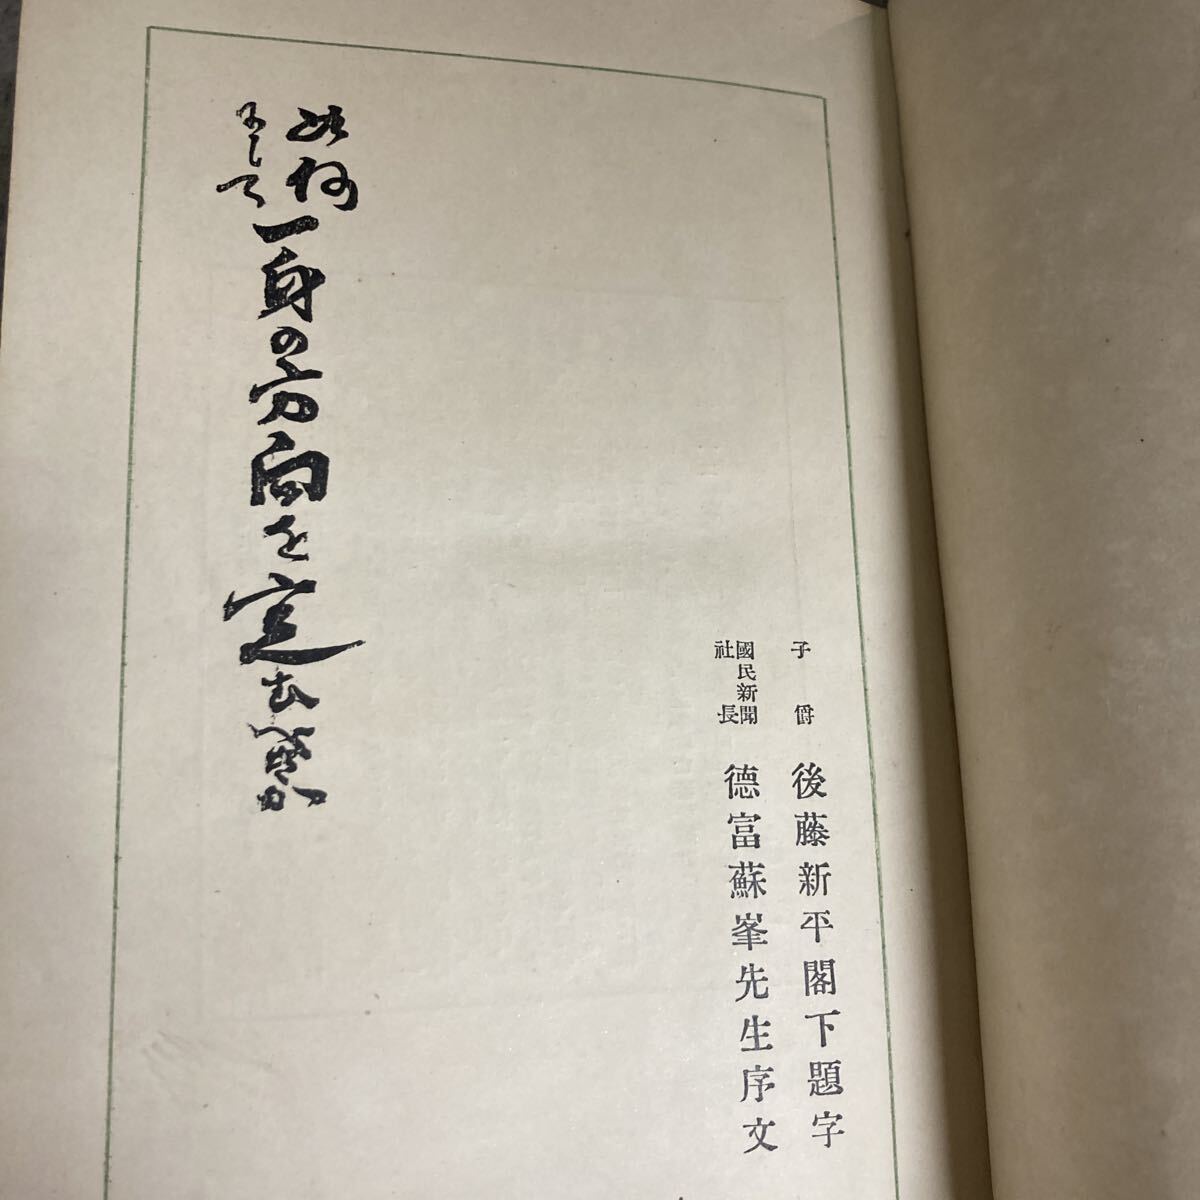 子爵 後藤新平閣下題字
國民新聞社長 德富蘇峯先生序文
如何にして一身の方向を定むべきか